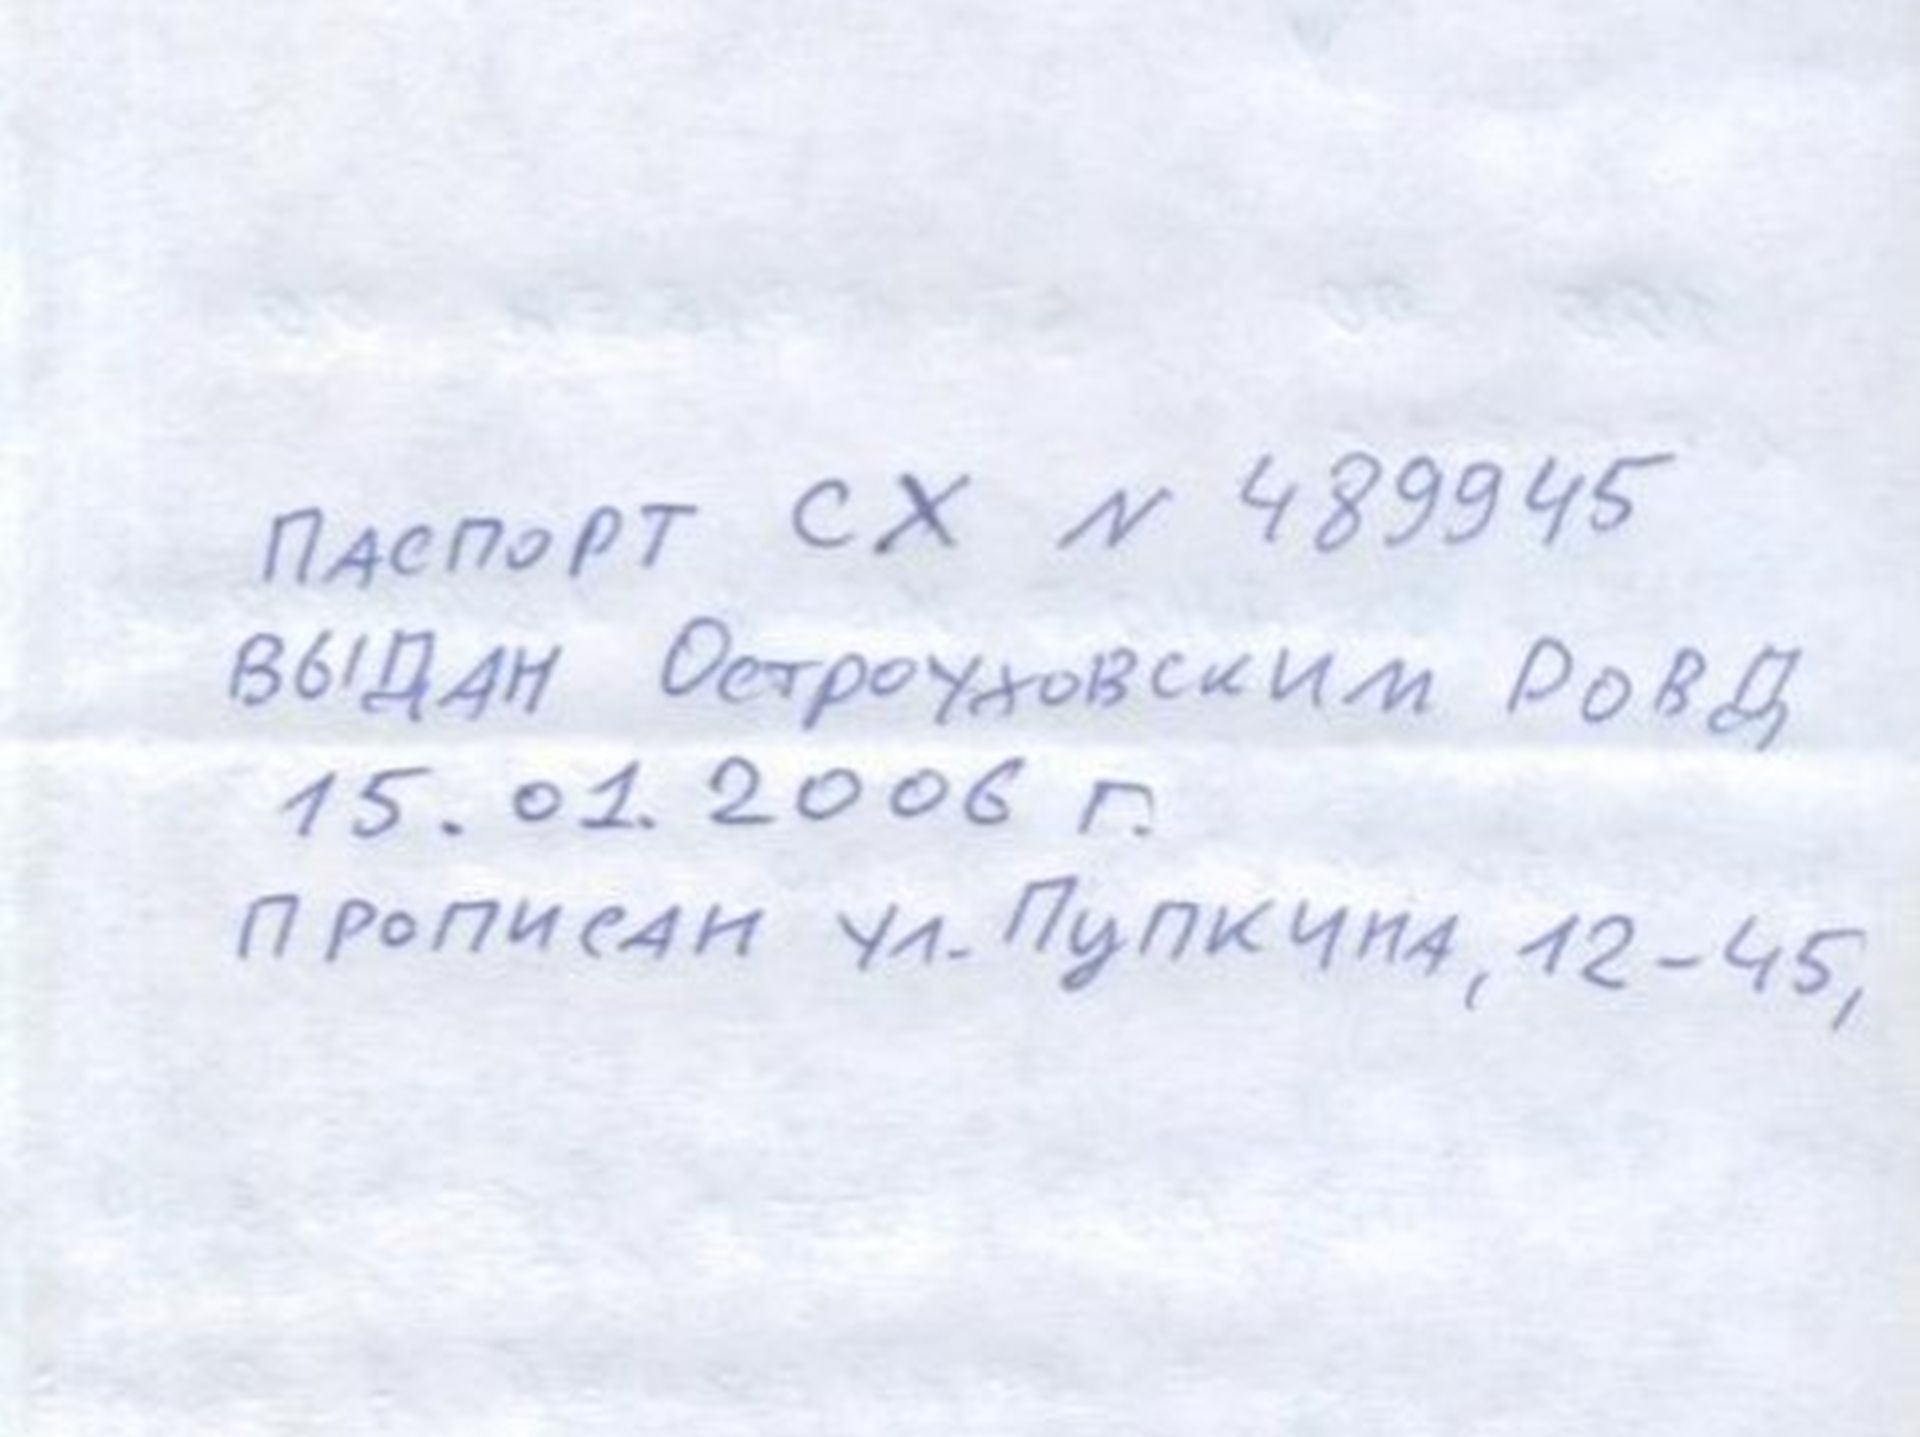 ПАСПОРТ СХ N 489945
ВЫДАН Остроуховским РОВД
15.01.2006 г.
ПРОПИСАН ул. Пупкина, 12-45,